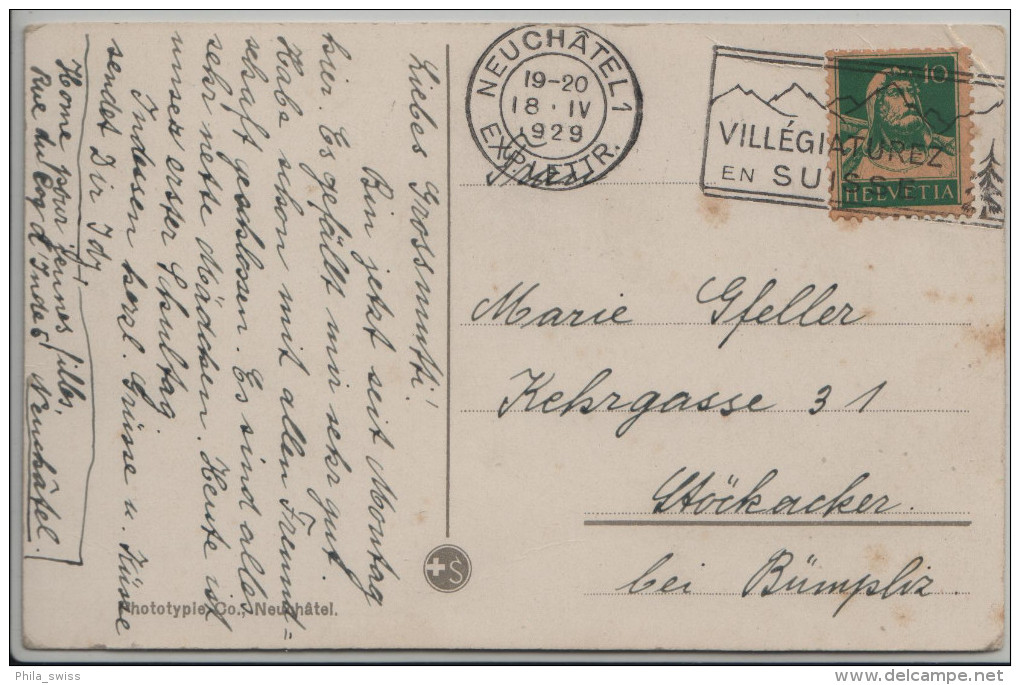 Liebes Grossmutti!
Bin jetzt seit Montag
hier. Es gefällt mir sehr gut
Habe schon mit allen Freund=
schaft geschlossen. Es sind alles
sehr nette Mädchen. Heute ist
unser erster Schultag.
Indessen herzl. Grüsse u. Küsse
sendet Dir Idy!
Home pour jeunes filles,
Rue du Coq d'Indes
Neuchâtel.
Photoypie Co., Neuchâtel.
NEUCHÂTEL 1
19-20
18·IV
1929
EXP. LETTR.
VILLÉGIATUREZ
EN SUISSE
10
HELVETIA
Frau
Marie Gfeller
Kehrgasse 31
Stöckacker.
bei Bümpliz
S
Phila_swiss
www.delcampe.net